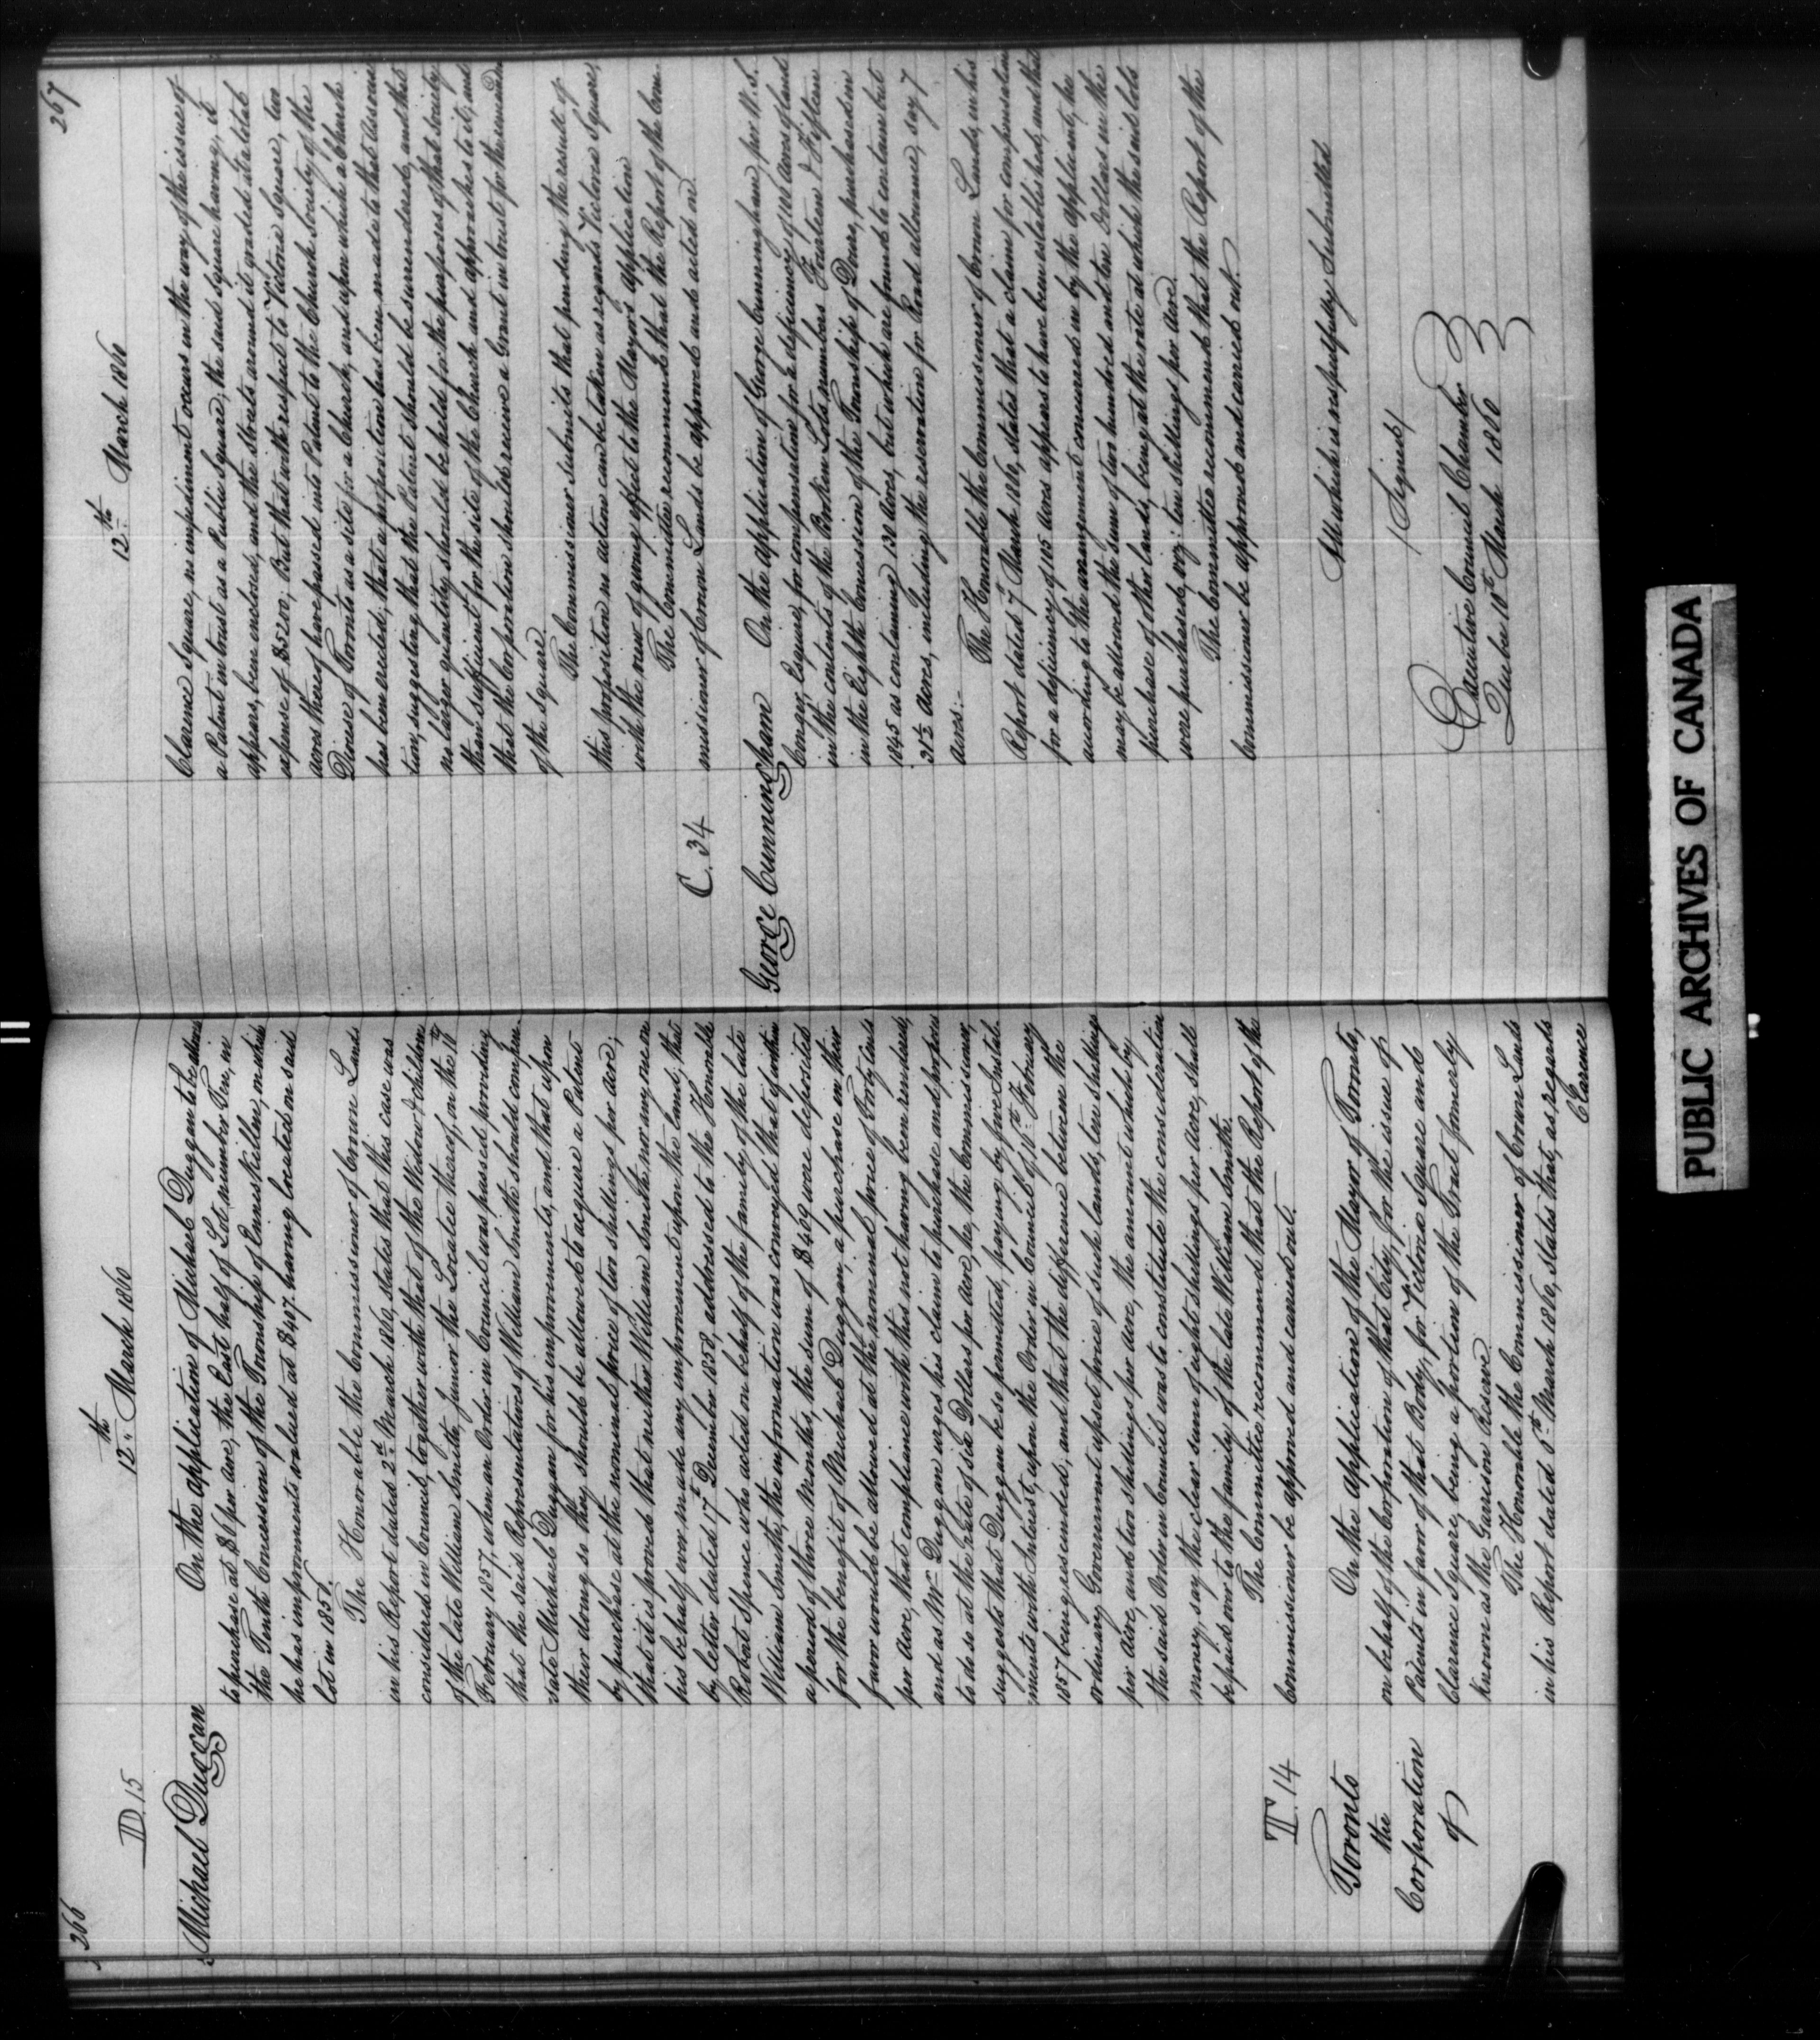 266
12th March 1860
D. 15
Michael Duggan
On the application of Michael Duggan to be allowed
to purchase at $6 per acre, the East half of Lot, number Ten, in
the Tenth Concession of the Township of Enniskillen, on which
he has improvements valued at $497. having located on said
lot in 1850.
The Honorable the Commissioner of Crown Lands
in his Report dated 2nd March 1860, states that this case was
considered in Council, together with that of the Widow & children
of the late William Smith, Junior the Locatee thereof, on the
February 1857, when an Order in Council was passed providing
that the said Representatives of William Smith should compen-
sate Michael Duggan for his improvements, and that upon
their doing so they should be allowed to acquire a Patent
by purchase at the nominal price of ten shillings per acre;
that it is proved that neither William Smith nor any one on
his behalf ever made any improvement upon the land; that
by letter dated 17th December 1858, addressed to the Honorable
Robert Spence who acted on behalf of the family of the late
William Smith, the information was conveyed that if within
a period of three Months, the sum of $409 were deposited
for the benefit of Michael Duggan, a purchase in their
favor would be allowed at the nominal price of Forty cents
per acre, that compliance with this not having been rendered,
and as Mr Duggan urges his claim to purchase and proposes
to do so at the rate of six Dollars per Acre, he, the Commissioner,
suggests that Duggan be so permitted, paying by five Instal-
ments with Interest, upon the Order in Council of February
1857 being rescinded, and that the difference between the
ordinary Government upset price of such lands, ten shillings
per Acre, and two shillings per acre, the amount which by
the said Order in Council was to constitute the consideration
money, say the clear sum of eight shillings per Acre, shall
be paid over to the family of the late William Smith.
The Committee recommend that the Report of the
Commissioner be approved and carried out.
T. 14
Toronto
the
Corporation
of
On the application of the Mayor of Toronto,
on behalf of the Corporation of that City, for the issue of
Patents in favor of that Body, for Victoria Square and
Clarence Square, being a portion of the Tract formerly
known as the Garrison Reserve.
The Honorable the Commissioner of Crown Lands
in his Report dated March 1860, States that, as regards
Clarence
267
12th March 1860
Clarence Square, no impediment occurs in the way of the issue of
a Patent in trust as a Public Square, the said square having, it
appears, been enclosed, and the streets around it graded at a total
expense of $5200; But that with respect to Victoria Square, two
acres thereof have passed into Patent to the Church Society of the
Diocese of Toronto as a site for a Church, and upon which a Church
has been erected; that a proposition has been made to that Associa-
tion, suggesting that the Patent should be surrendered, and that
no larger quantity should be held for the purposes of that society
than sufficient for the site of the Church and approaches to it, and
that the Corporation should receive a Grant in trust for the remainder
of the square.
The Commissioner submits that pending the result of
this proposition no action can be taken as regards Victoria Square,
with the view of giving effect to the Mayor's application
The Committee recommend that the Report of the Com-
missioner of Crown Lands be approved and acted on.
C. 34
George Cunningham
On the application of George Cunningham, per W. S.
Conger, Esquire, for compensation for a deficiency of Acres of land
in the contents of the Broken Lots numbers Fourteen & Fifteen
in the Eighth Concession of the Township of Douro, purchased in
1845 as containing Acres, but which are found to contain but
21½ Acres, including the reservation for Road allowance, say 7
acres:-
The Honorable the Commissioner of Crown Lands, in his
Report dated 7th March 1860, states that a claim for compensation
for a deficiency of 105 Acres appears to have been established, and that
according to the arrangement concurred in by the applicant, he
may be allowed the sum of two hundred and ten Dollars in the
purchase of other lands, being at the rate at which the said lots
were purchased, viz: ten shillings per acre.
The Committee recommend that the Report of the
Commissioner be approved and carried out.
All which is respectfully submitted
(Signed)
Executive Council Chamber
Quebec March 1860
PUBLIC ARCHIVES OF CANADA